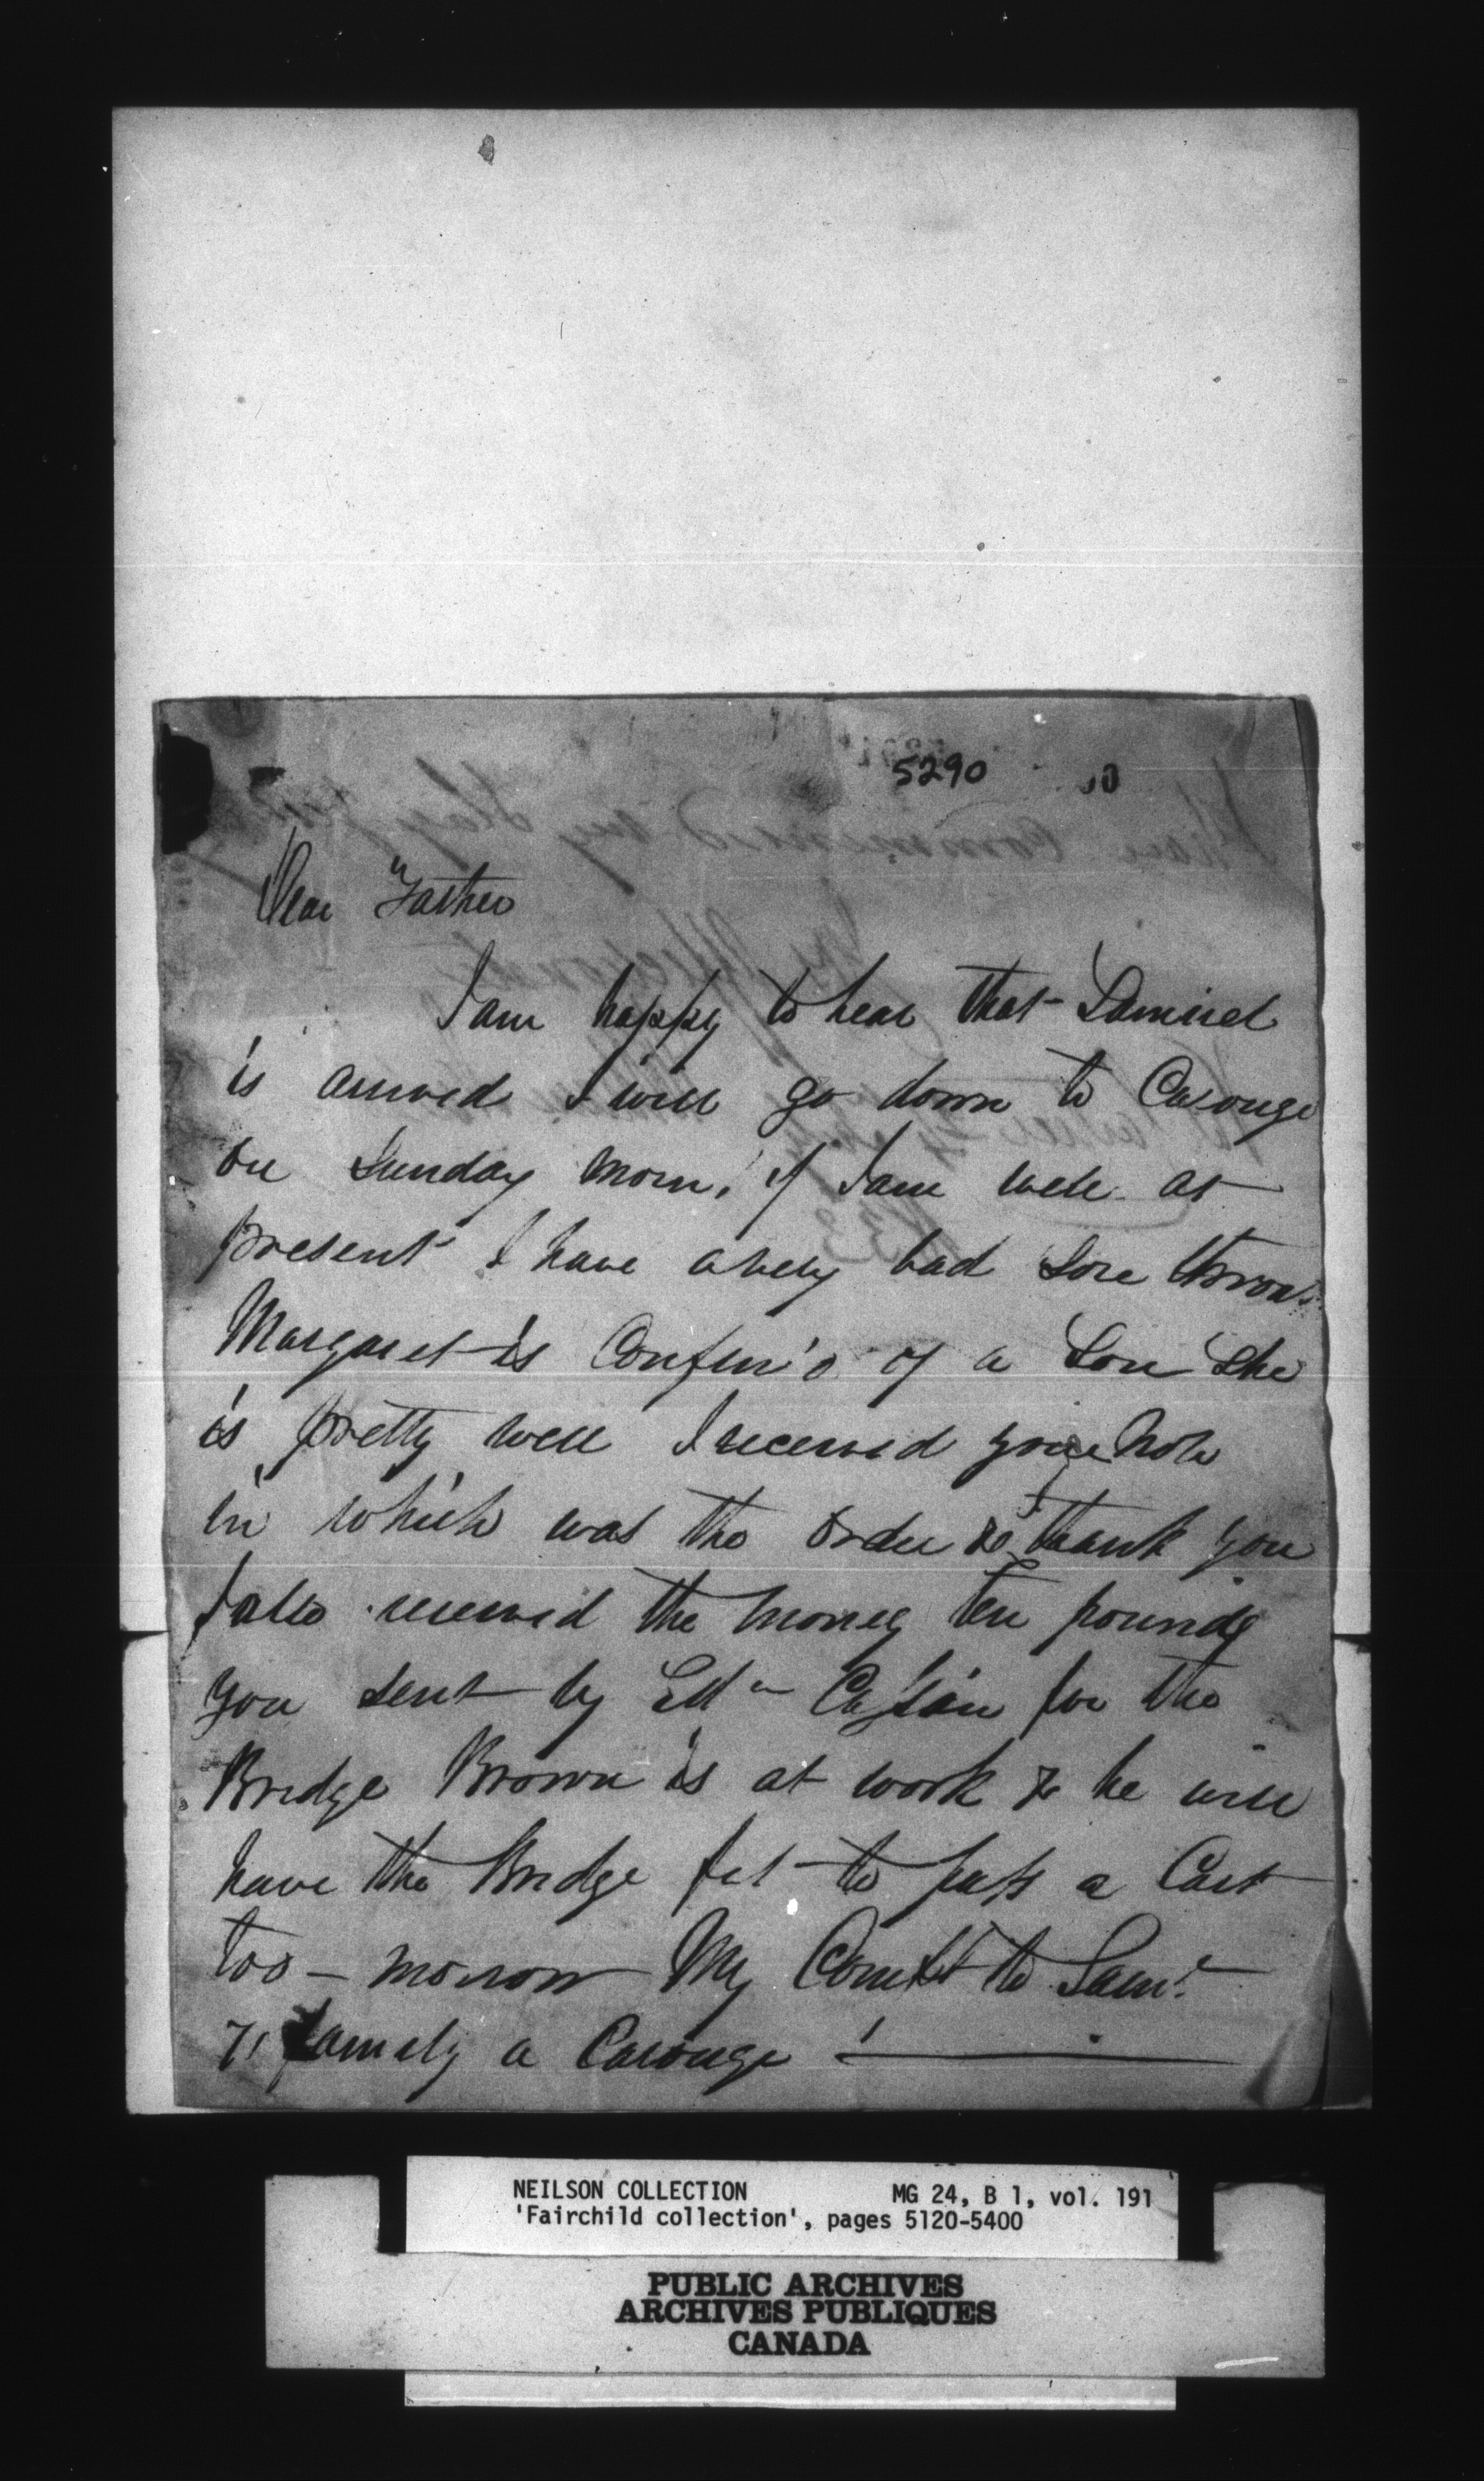 5290
Dear Father
I am happy to hear that Samuel
is arrived I will go down to Carouge
on Sunday morn. if I am well at
present I have a very bad Sore throat
Margaret is Confin'd of a Son She
is pretty well I received your Note
in which was the order & I thank you
I also received the money ten pounds
you sent by Edn Cassin for the
Bridge Brown is at work & he will
have the Bridge fit to pass a Cart
too-morrow My Comts to Saml
& family a Carouge
NEILSON COLLECTION MG 24, B 1, vol. 191
'Fairchild collection', pages 5120-5400
PUBLIC ARCHIVES
ARCHIVES PUBLIQUES
CANADA